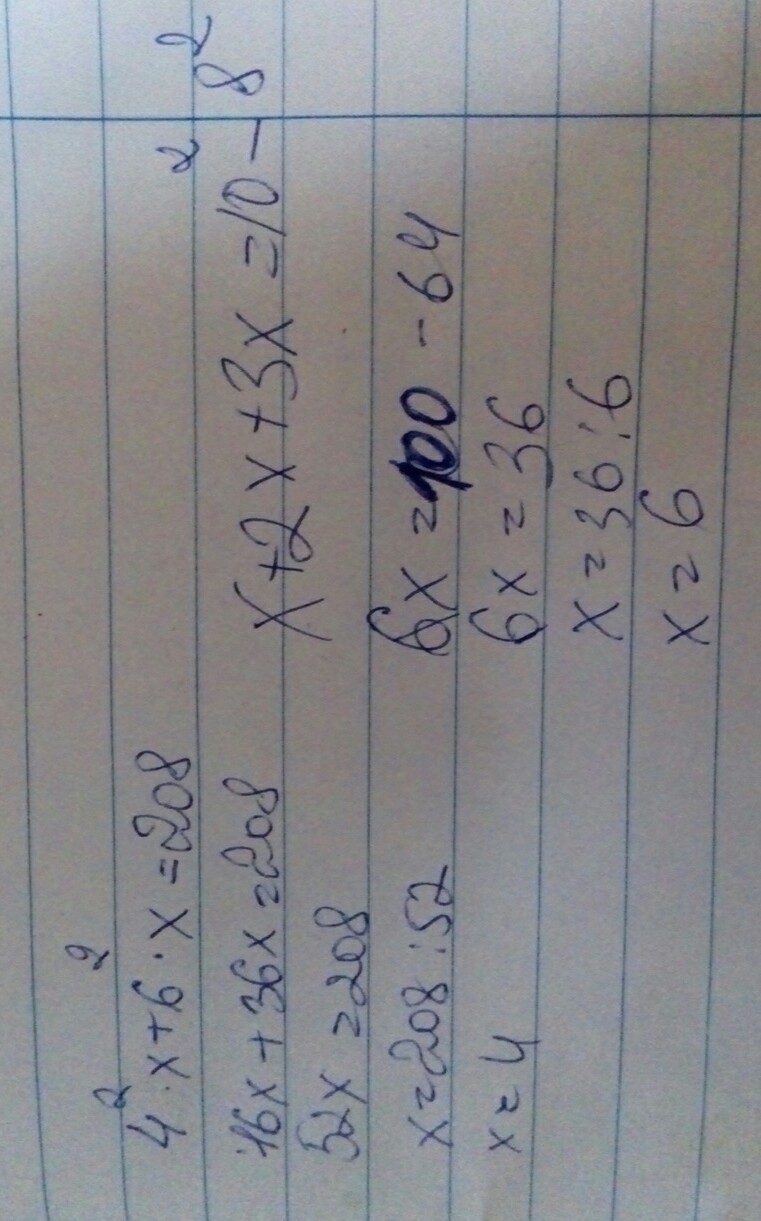 4² · x + 6² · x = 208
16x + 36x = 208
52x = 208
x = 208 : 52
x = 4
x + 2x + 3x = 10² - 8²
6x = 100 - 64
6x = 36
x = 36 : 6
x = 6